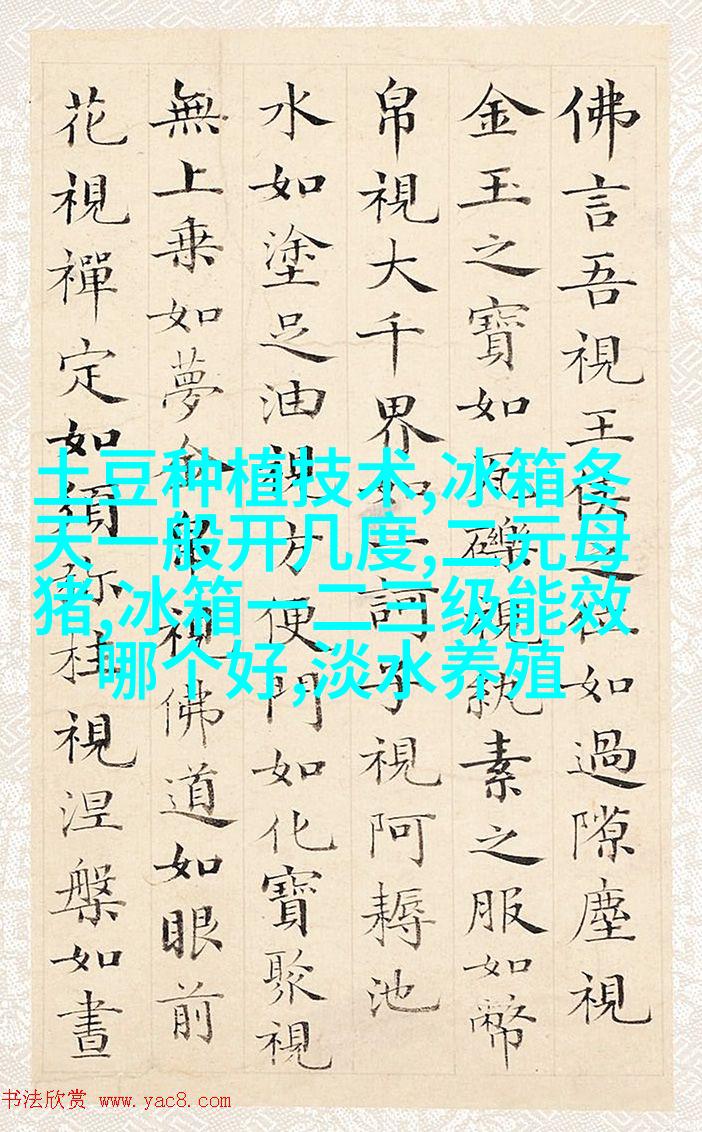 佛言吾視王侯之位如過隙塵視
金玉之寶如瓦礫視紈素之服如幣
帛視大千界如一訶子視阿耨池
水如塗足油視方便門如化寶聚視
無上乗如夢金帛視佛道如眼前
花視禪定如須弥柱視涅槃如晝
土豆种植技术,冰箱冬
天一般开几度,二元母
猪,冰箱一二三级能效
哪个好,淡水养殖
书法欣赏 www.yac8.com